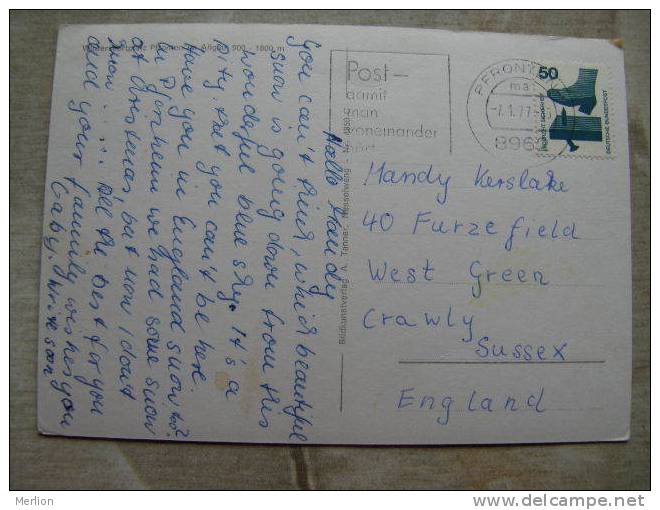 Hallo Mandy
You can't think, which beautiful
snow is going down from this
wonderful blue sky. It's a
pity that you can't be here.
Have you in England snow too?
In Pforzheim we had some snow
at Christmas, but now I don't
know ..... All the best for you
and your family wishes you
Gaby. Write soon
Pfronten Allgäu 900 - 1800 m
Bildkunstverlag A. Tanner, Nesselwang - Nr.
Post-
damit
man
voneinander
hört
PFRONTEN
-7.1.77
8962
50
DEUTSCHE BUNDESPOST
Mandy Kerslake
40 Furzefield
West Green
Crawly
Sussex
England
Merlion
http://www.delcampe.net